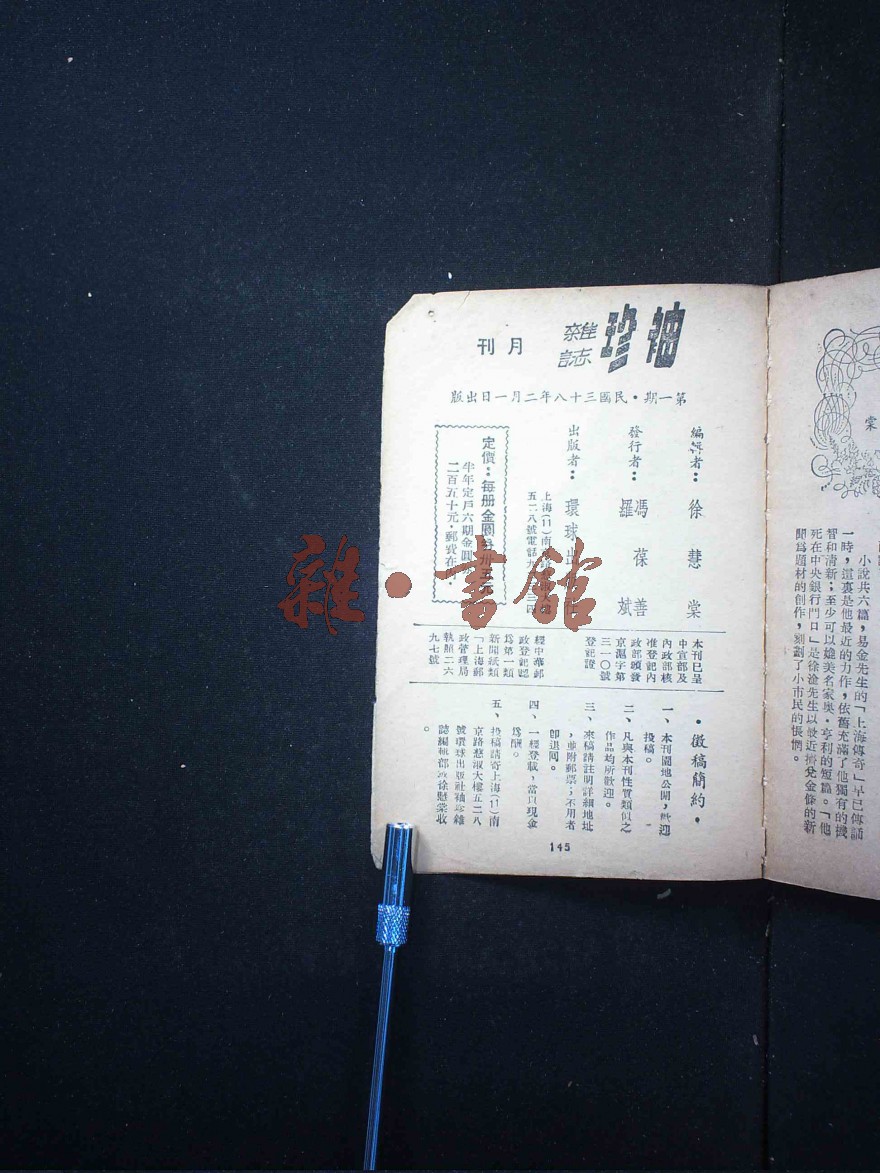 袖珍雜誌 月刊
第一期·民國三十八年二月一日出版
編輯者：徐慧棠
發行者：馮葆善
羅斌
出版者：環球出
上海(11)南
五二八號電話
定價：每册金圓券卅五元
半年定戶六期金圓
二百五十元·郵費在
本刊已呈
中宣部及
內政部核
准登記內
政部頒發
京滬字第
三一〇號
登記證
經中華郵
政登記認
爲第一類
新聞紙類
「上海郵
政管理局
執照二六
九七號
·徵稿簡約·
一、本刊園地公開，歡迎
投稿。
二、凡與本刊性質類似之
作品均所歡迎。
三、來稿請註明詳細地址
，並附郵票；不用者
卽退閱。
四、一經登載，當以現金
爲酬。
五、投稿請寄上海(11)南
京路慈淑大樓五二八
號環球出版社袖珍雜
誌編輯部 徐慧棠收
。
145
棠
小說共六篇，易金先生的「上海傳奇」早已傳誦
一時，這裏是他最近的力作，依舊充滿了他獨有的機
智和清新；至少可以媲美名家奧·亨利的短篇。「他
死在中央銀行門口」是徐淦先生以最近擠兌金條的新
聞爲題材的創作，刻劃了小市民的悵惘。
雜·書館